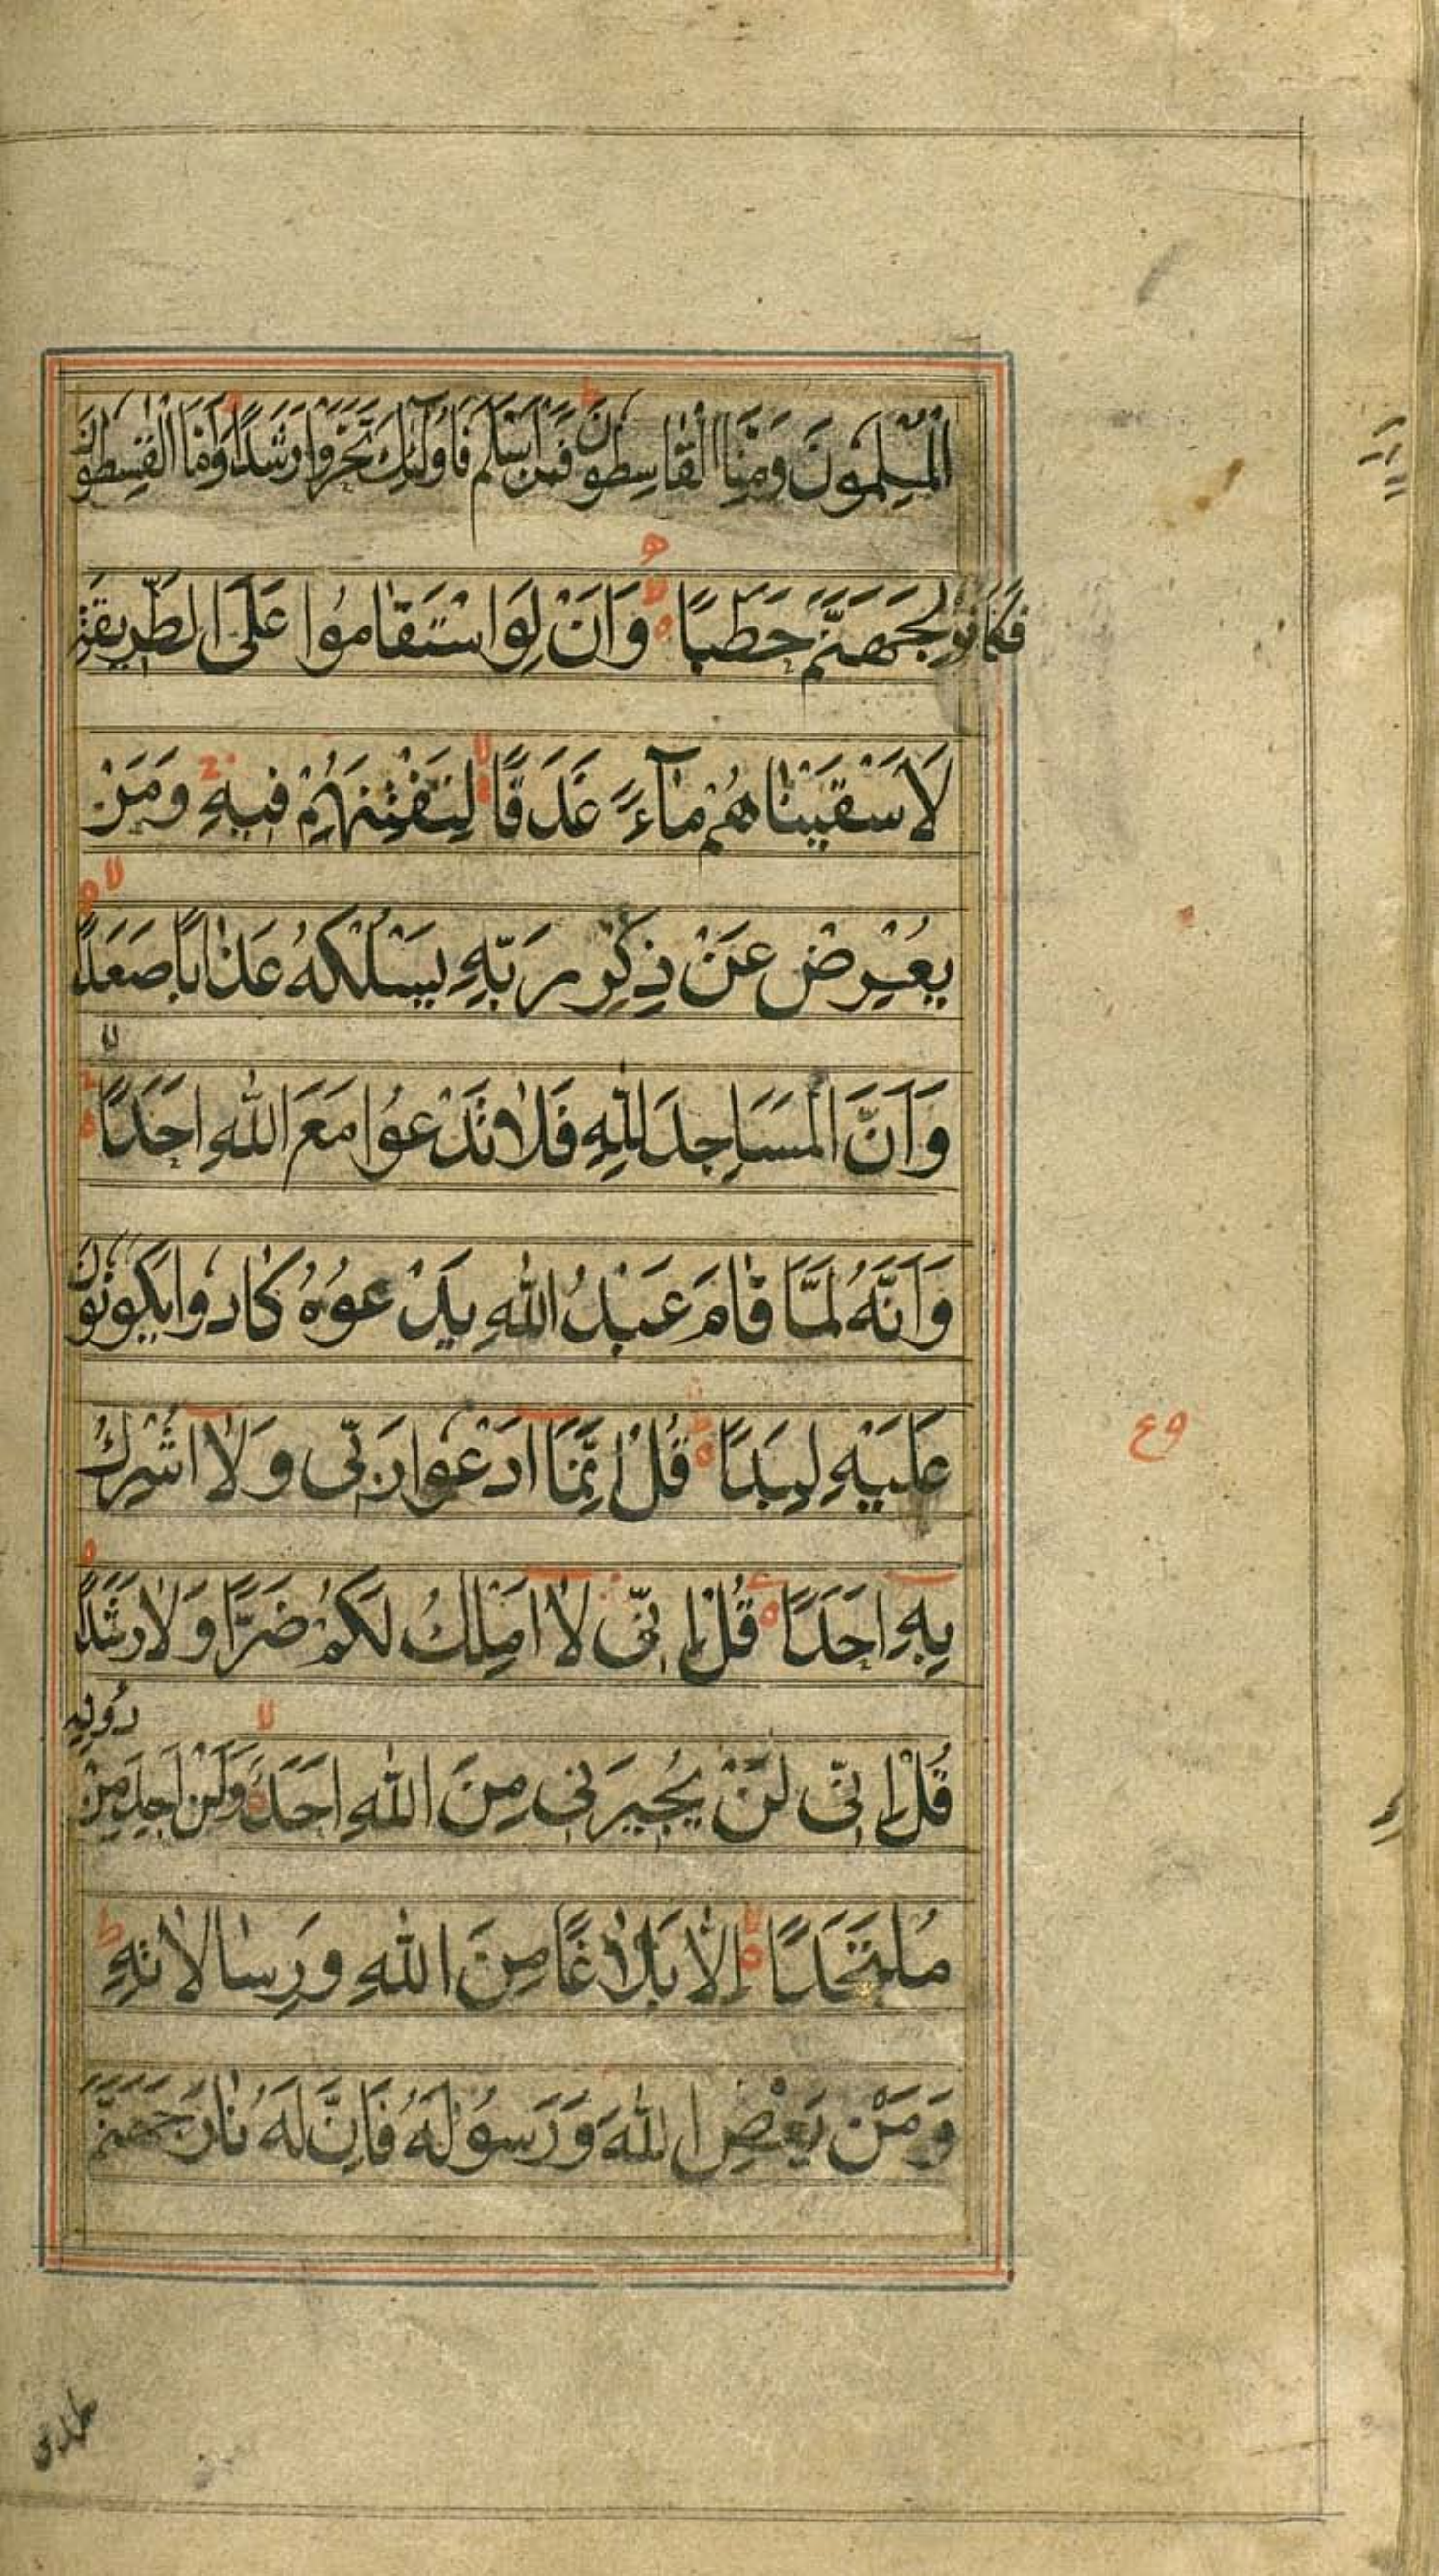 الْمُسْلِمُونَ وَمِنَّا الْقَاسِطُونَ فَمَنْ اَسْلَمَ فَاُولٰٓئِكَ تَحَرَّوْا رَشَدًا وَاَمَّا الْقٰسِطُونَ
فَكَانُوا لِجَهَنَّمَ حَطَبًا وَاَنْ لَوِ اسْتَقَامُوا عَلَى الطَّرِيقَةِ
لَاَسْقَيْنَاهُمْ مَآءً غَدَقًا لِنَفْتِنَهُمْ فِيهِ وَمَنْ
يُعْرِضْ عَنْ ذِكْرِ رَبِّهِ يَسْلُكْهُ عَذَابًا صَعَدًا
وَاَنَّ الْمَسَاجِدَ لِلّٰهِ فَلَا تَدْعُوا مَعَ اللّٰهِ اَحَدًا
وَاَنَّهُ لَمَّا قَامَ عَبْدُ اللّٰهِ يَدْعُوهُ كَادُوا يَكُونُونَ
عَلَيْهِ لِبَدًا قُلْ اِنَّمَا اَدْعُوا رَبِّى وَلَا اُشْرِكُ
بِهِ اَحَدًا قُلْ اِنِّى لَا اَمْلِكُ لَكُمْ ضَرًّا وَلَا رَشَدًا
قُلْ اِنِّى لَنْ يُجِيرَنِى مِنَ اللّٰهِ اَحَدٌ وَلَنْ اَجِدَ مِنْ دُونِهِ
مُلْتَحَدًا اِلَّا بَلَاغًا مِنَ اللّٰهِ وَرِسَالَاتِهِ
وَمَنْ يَعْصِ اللّٰهَ وَرَسُولَهُ فَاِنَّ لَهُ نَارَ جَهَنَّمَ